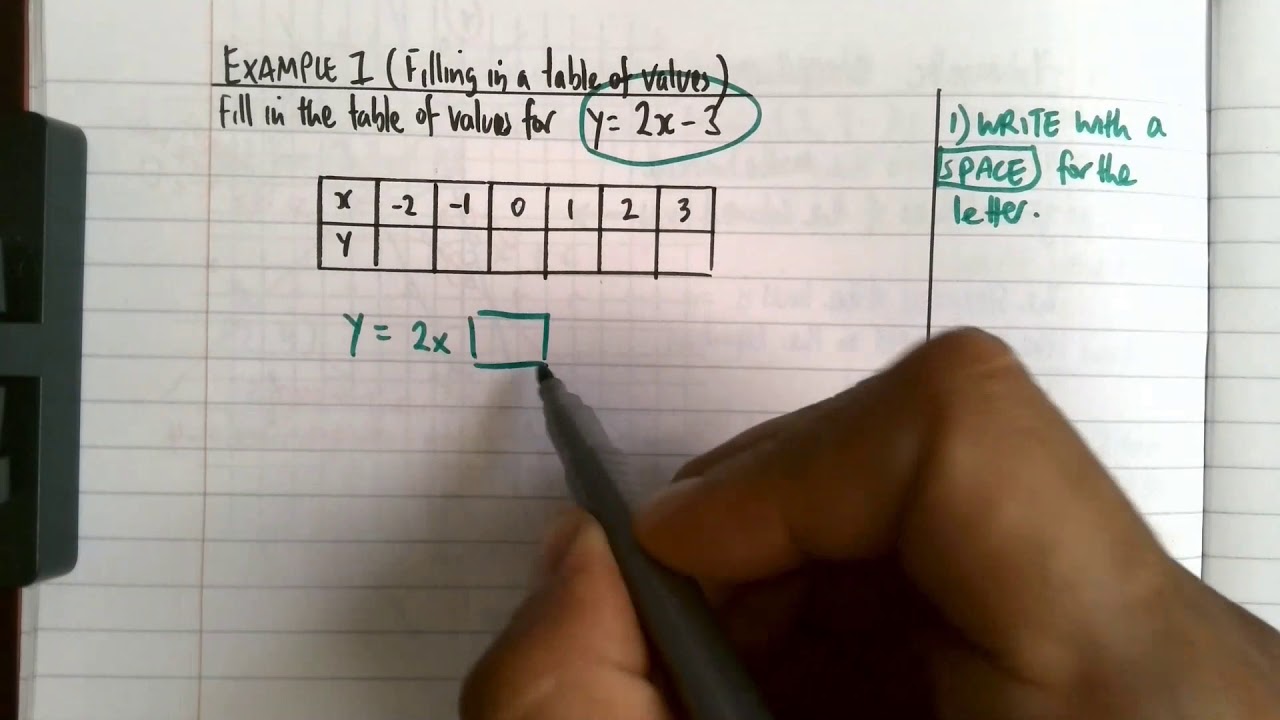 EXAMPLE 1 (Filling in a table of values)
Fill in the table of values for y= 2x - 3
x -2 -1 0 1 2 3
y
y = 2x
1) WRITE with a
SPACE for the
letter.